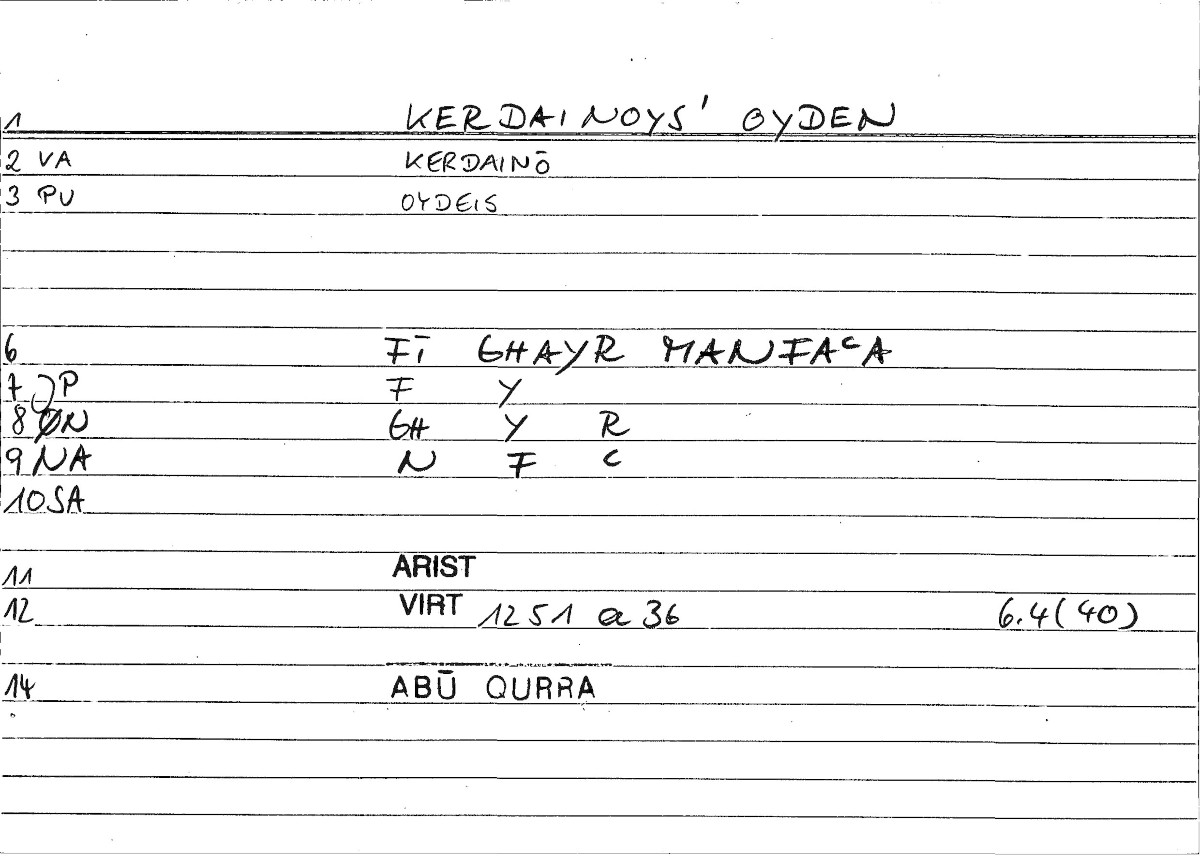 1 KERDAINOYS' OYDEN
2 VA KERDAINŌ
3 PU OYDEIS
6 FĪ GHAYR MANFAᶜA
7 JP F Y
8 ØN GH Y R
9 NA N F ᶜ
10 SA
11 ARIST
12 VIRT 1251 a 36 6.4(40)
14 ABŪ QURRA